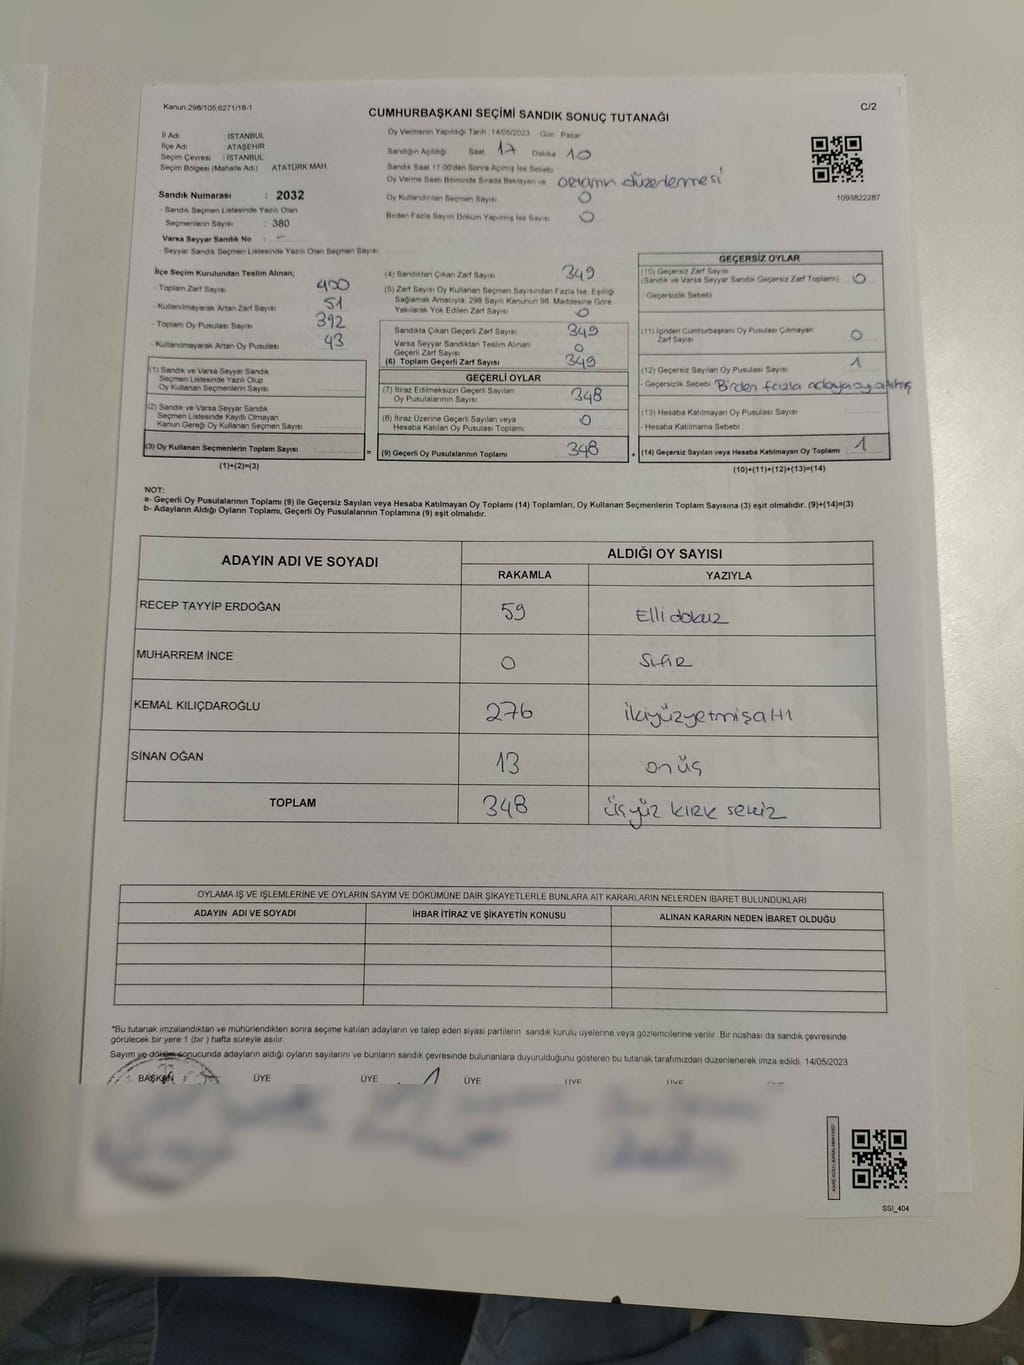 Kanun:298/105;6271/18-1
C/2
CUMHURBAŞKANI SEÇİMİ SANDIK SONUÇ TUTANAĞI
İl Adı : İSTANBUL
İlçe Adı : ATAŞEHİR
Seçim Çevresi : İSTANBUL
Seçim Bölgesi (Mahalle Adı) : ATATÜRK MAH
Sandık Numarası : 2032
- Sandık Seçmen Listesinde Yazılı Olan
Seçmenlerin Sayısı : 380
Varsa Seyyar Sandık No : -
- Seyyar Sandık Seçmen Listesinde Yazılı Olan Seçmen Sayısı
Oy Vermenin Yapıldığı Tarih : 14/05/2023 Gün : Pazar
Sandığın Açıldığı Saat 17 Dakika 10
Sandık Saat 17:00'den Sonra Açılmış İse Sebebi
Oy Verme Saati Bitiminde Sırada Bekleyen ve ortamın düzenlemesi
Oy Kullandırılan Seçmen Sayısı 0
Birden Fazla Sayım Döküm Yapılmış İse Sayısı 0
1093822287
İlçe Seçim Kurulundan Teslim Alınan;
- Toplam Zarf Sayısı 400
- Kullanılmayarak Artan Zarf Sayısı 51
- Toplam Oy Pusulası Sayısı 392
- Kullanılmayarak Artan Oy Pusulası 43
(1) Sandık ve Varsa Seyyar Sandık
Seçmen Listesinde Yazılı Olup
Oy Kullanan Seçmenlerin Sayısı
(2) Sandık ve Varsa Seyyar Sandık
Seçmen Listesinde Kayıtlı Olmayan
Kanun Gereği Oy Kullanan Seçmen Sayısı
(3) Oy Kullanan Seçmenlerin Toplam Sayısı
(1)+(2)=(3)
(4) Sandıktan Çıkan Zarf Sayısı 349
(5) Zarf Sayısı Oy Kullanan Seçmen Sayısından Fazla İse, Eşitliği
Sağlamak Amacıyla, 298 Sayılı Kanunun 98. Maddesine Göre
Yakılarak Yok Edilen Zarf Sayısı 0
Sandıkta Çıkan Geçerli Zarf Sayısı 349
Varsa Seyyar Sandıktan Teslim Alınan
Geçerli Zarf Sayısı 0
(6) Toplam Geçerli Zarf Sayısı 349
GEÇERLİ OYLAR
(7) İtiraz Edilmeksizin Geçerli Sayılan
Oy Pusulalarının Sayısı 348
(8) İtiraz Üzerine Geçerli Sayılan veya
Hesaba Katılan Oy Pusulası Toplamı 0
= (9) Geçerli Oy Pusulalarının Toplamı 348 +
GEÇERSİZ OYLAR
(10) Geçersiz Zarf Sayısı
(Sandık ve Varsa Seyyar Sandık Geçersiz Zarf Toplamı) 0
- Geçersizlik Sebebi
(11) İçinden Cumhurbaşkanı Oy Pusulası Çıkmayan
Zarf Sayısı 0
(12) Geçersiz Sayılan Oy Pusulası Sayısı 1
- Geçersizlik Sebebi Birden fazla adaya oy atılmış
(13) Hesaba Katılmayan Oy Pusulası Sayısı
- Hesaba Katılmama Sebebi
(14) Geçersiz Sayılan veya Hesaba Katılmayan Oy Toplamı 1
(10)+(11)+(12)+(13)=(14)
NOT:
a- Geçerli Oy Pusulalarının Toplamı (9) ile Geçersiz Sayılan veya Hesaba Katılmayan Oy Toplamı (14) Toplamları, Oy Kullanan Seçmenlerin Toplam Sayısına (3) eşit olmalıdır. (9)+(14)=(3)
b- Adayların Aldığı Oyların Toplamı, Geçerli Oy Pusulalarının Toplamına (9) eşit olmalıdır.
ADAYIN ADI VE SOYADI
ALDIĞI OY SAYISI
RAKAMLA YAZIYLA
RECEP TAYYİP ERDOĞAN 59 Elli dokuz
MUHARREM İNCE 0 Sıfır
KEMAL KILIÇDAROĞLU 276 ikiyüzyetmişaltı
SİNAN OĞAN 13 onüç
TOPLAM 348 üçyüz kırk sekiz
OYLAMA İŞ VE İŞLEMLERİNE VE OYLARIN SAYIM VE DÖKÜMÜNE DAİR ŞİKAYETLERLE BUNLARA AİT KARARLARIN NELERDEN İBARET BULUNDUKLARI
ADAYIN ADI VE SOYADI İHBAR İTİRAZ VE ŞİKAYETİN KONUSU ALINAN KARARIN NEDEN İBARET OLDUĞU
*Bu tutanak imzalandıktan ve mühürlendikten sonra seçime katılan adayların ve talep eden siyasi partilerin sandık kurulu üyelerine veya gözlemcilerine verilir. Bir nüshası da sandık çevresinde
görülecek bir yere 1 (bir) hafta süreyle asılır.
Sayım ve döküm sonucunda adayların aldığı oyların sayılarını ve bunların sandık çevresinde bulunanlara duyurulduğunu gösteren bu tutanak tarafımızdan düzenlenerek imza edildi. 14/05/2023
BAŞKAN ÜYE ÜYE ÜYE ÜYE ÜYE
SSI_404